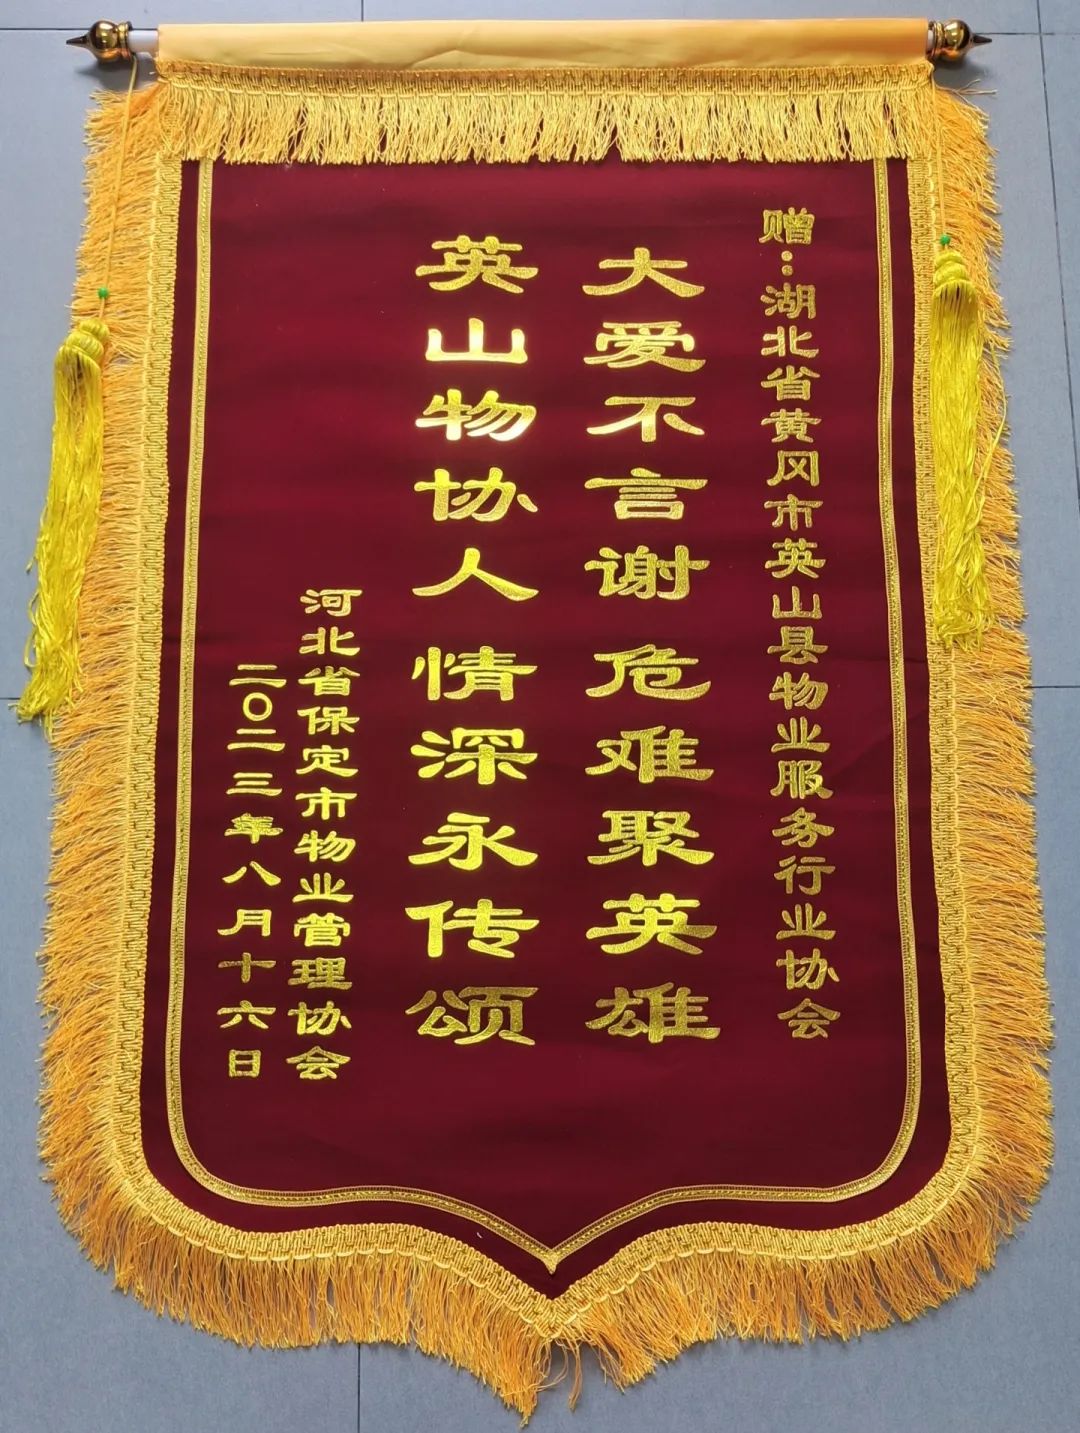 赠：湖北省黄冈市英山县物业服务行业协会
大爱不言谢 危难聚英雄
英山物协人 情深永传颂
河北省保定市物业管理协会
二〇二三年八月十六日